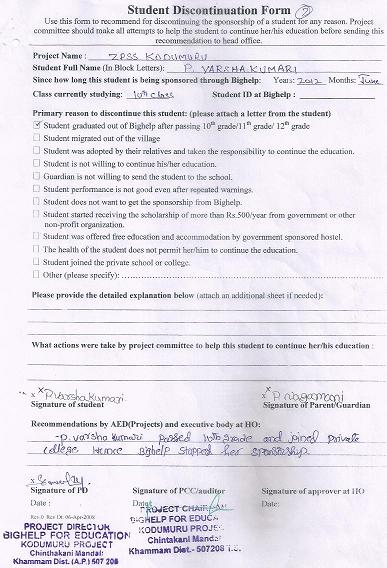 Student Discontinuation Form 2
Use this form to recommend for discontinuing the sponsorship of a student for any reason. Project
committee should make all attempts to help the student to continue her/his education before sending this
recommendation to head office.
Project Name : ZPSS KODUMURU
Student Full Name (In Block Letters): P. VARSHA KUMARI
Since how long this student is being sponsored through Bighelp: Years: 2012 Months: June
Class currently studying: 10th class Student ID at Bighelp :
Primary reason to discontinue this student: (please attach a letter from the student)
Student graduated out of Bighelp after passing 10th grade/11th grade/ 12th grade
Student migrated out of the village
Student was adopted by their relatives and taken the responsibility to continue the education.
Student is not willing to continue his/her education.
Guardian is not willing to send the student to the school.
Student performance is not good even after repeated warnings.
Student does not want to get the sponsorship from Bighelp.
Student started receiving the scholarship of more than Rs.500/year from government or other
non-profit organization.
Student was offered free education and accommodation by government sponsored hostel.
The health of the student does not permit her/him to continue the education.
Student joined the private school or college.
Other (please specify):
Please provide the detailed explanation below (attach an additional sheet if needed):
What actions were take by project committee to help this student to continue her/his education :
x x P.varsha Kumari. x x P nagamani
Signature of student Signature of Parent/Guardian
Recommendations by AED(Projects) and executive body at HO:
-p. varsha kumari passed 10th grade and joined private
college hence Bighelp stopped her sponsorship.
Signature of PD Signature of PCC/auditor Signature of approver at HO
Date : Date: Date:
Rev.0 Rev Dt. 06-Apr-2008
PROJECT DIRECTOR
BIGHELP FOR EDUCATION
KODUMURU PROJECT
Chinthakani Mandal
Khammam Dist. (A.P.) 507 208
PROJECT CHAIRMAN
BIGHELP FOR EDUCA
KODUMURU PROJECT
Chintakani Mandal
Khammam Dist.- 507208 T.S.